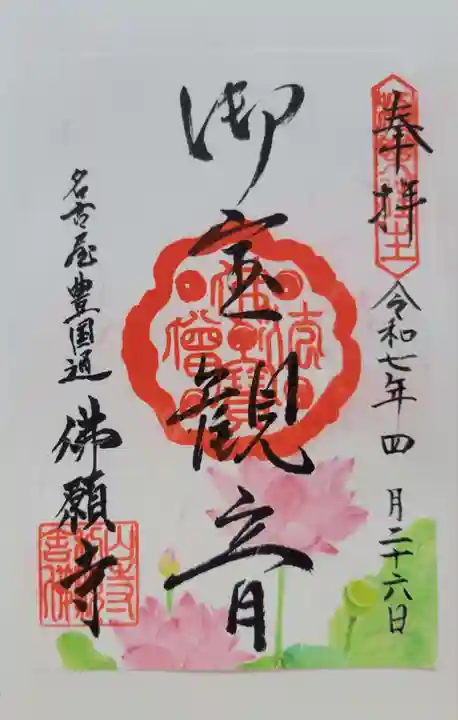 奉拝
令和七年四月二十六日
御宝観音
名古屋豊国通
佛願寺
佛法僧寳